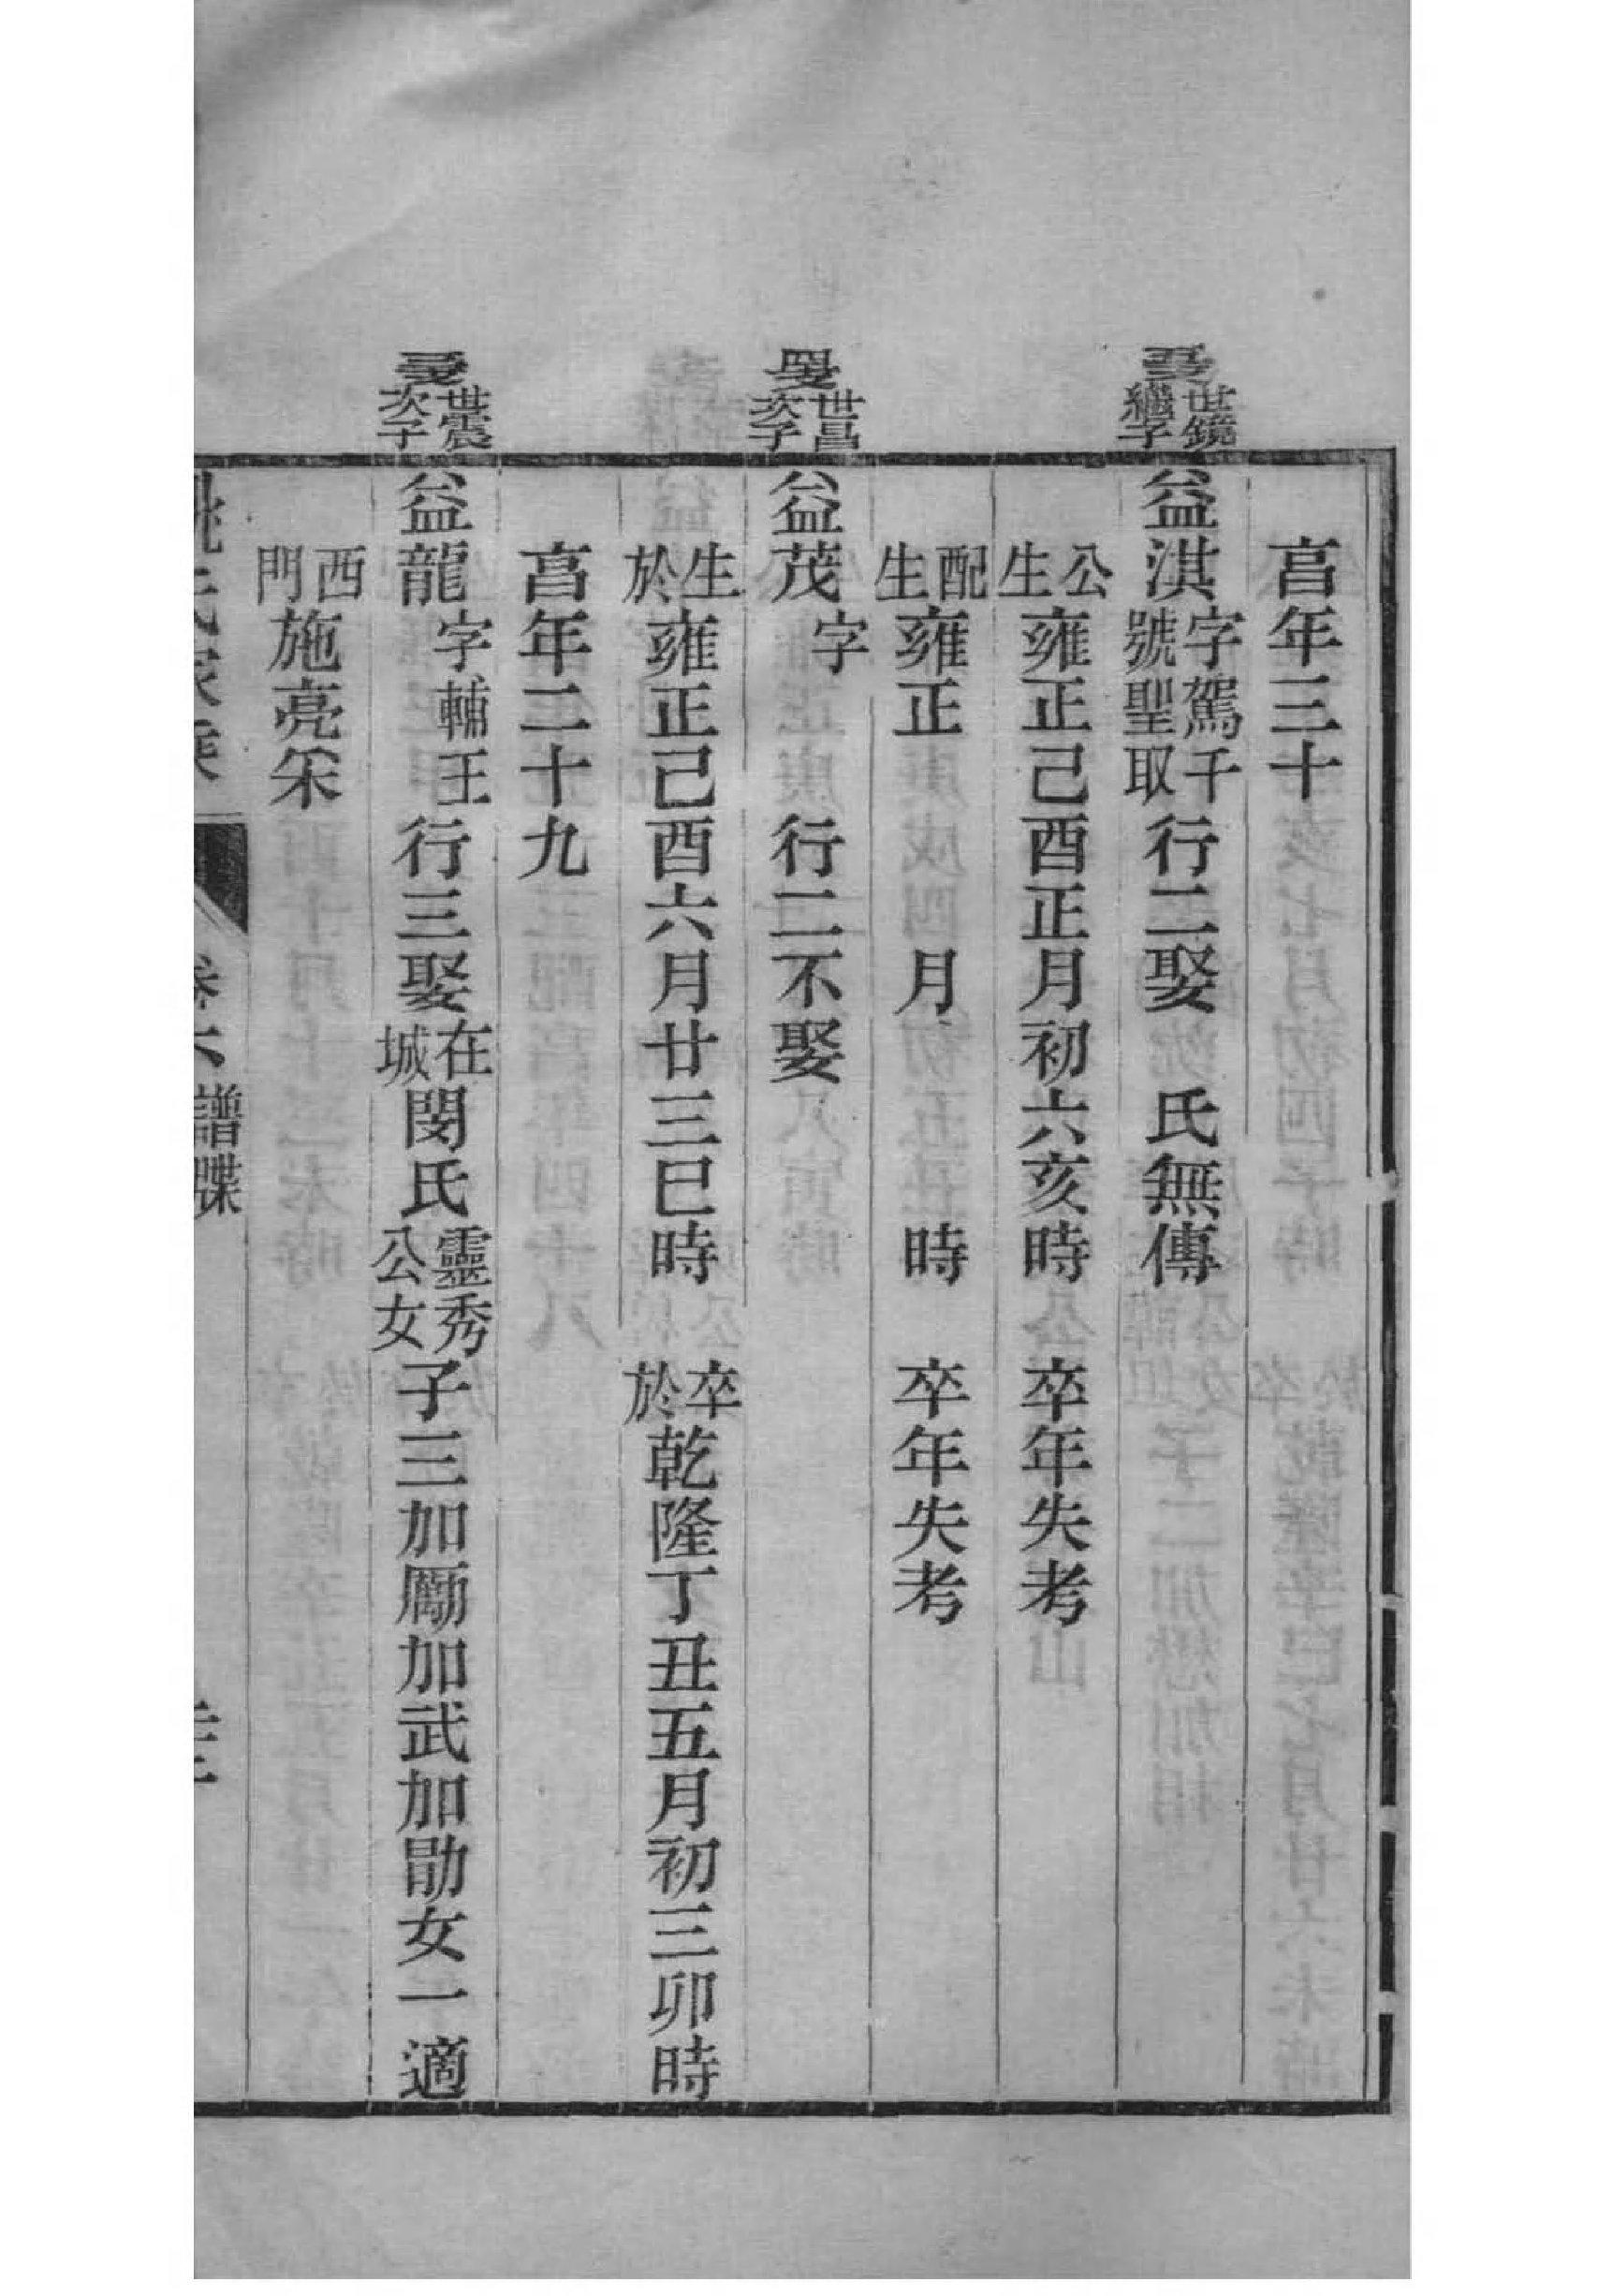 亯年三十
世鏡繼子
益淇字駕千號聖取行二娶 氏無傳
公生雍正己酉正月初六亥時 卒年失考
配生雍正 月 時 卒年失考
世昌次子
益茂字 行二不娶
生於雍正己酉六月廿三巳時 卒於乾隆丁丑五月初三卯時
亯年二十九
世震次子
益龍字輔王行三娶在城閔氏靈秀公女子三加勵加武加勛女一適
西門施亮采
譜牒